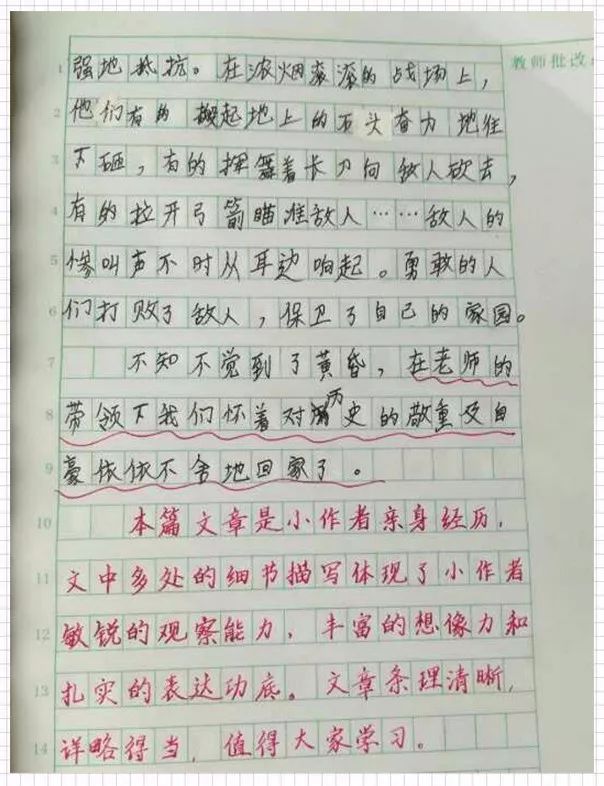 教师批改
1 强地抵抗。在浓烟滚滚的战场上，
2 他们有的搬起地上的石头奋力地往
3 下砸，有的挥舞着长刀向敌人砍去，
4 有的拉开弓箭瞄准敌人……敌人的
5 惨叫声不时从耳边响起。勇敢的人
6 们打败了敌人，保卫了自己的家园。
7 不知不觉到了黄昏，在老师的
8 带领下我们怀着对历史的敬重及自
9 豪依依不舍地回家了。
10 本篇文章是小作者亲身经历，
11 文中多处的细节描写体现了小作者
12 敏锐的观察能力，丰富的想像力和
13 扎实的表达功底。文章条理清晰，
14 详略得当，值得大家学习。